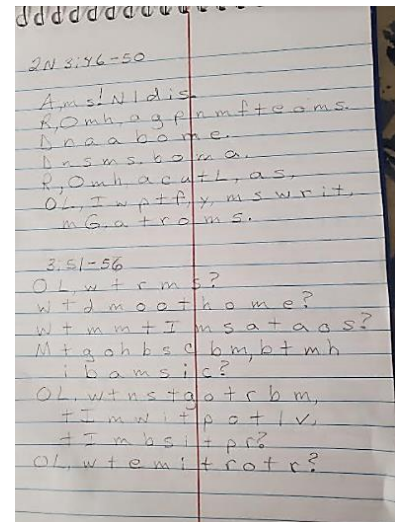 2N 3:46-50
A, m s! N l d i s.
R, O m h, a g p n m f t e o m s.
D n a a b o m e.
D n s m s. b o m a.
R, O m h, a c u t L, a s,
O L, I w p t f, y, m s w r i t,
m G, a t r o m s.
3:51-56
O L, w t r m s?
W t d m o o t h o m e?
W t m m t I m s a t a o s?
M t g o h b s c b m, b t m h
i b a m s i c?
O L, w t n s t g o t r b m,
t I m w i t p o t l v,
t I m b s i t p r?
O L, w t e m i t r o t r?